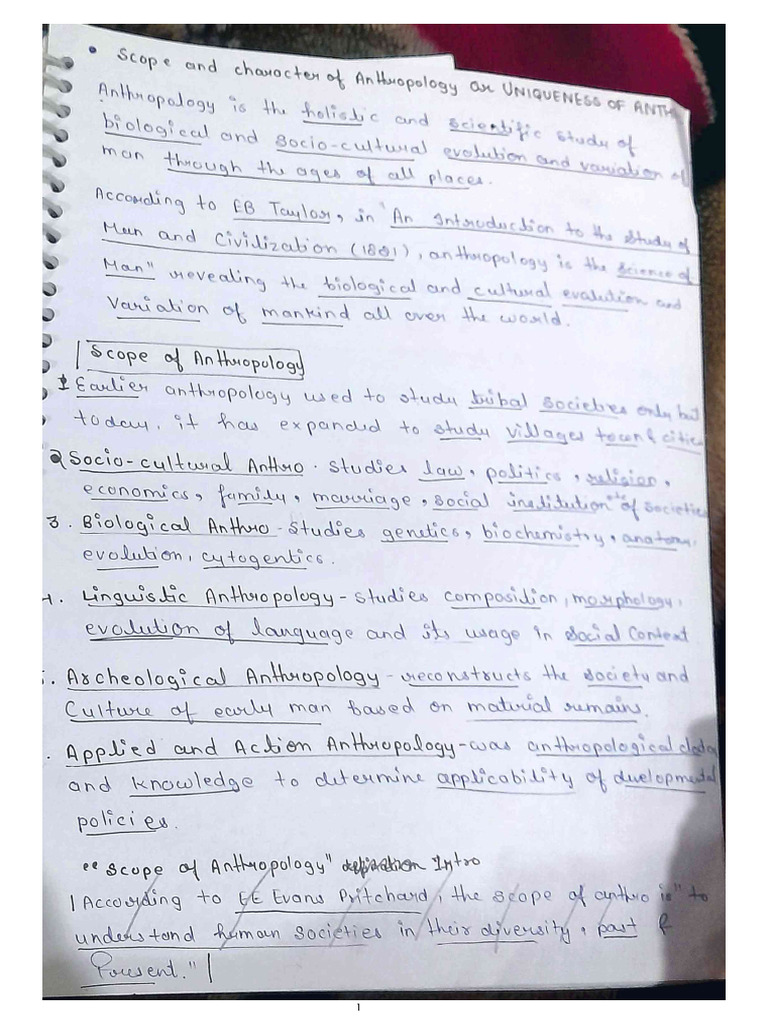 • Scope and character of Anthropology or UNIQUENESS OF ANTH
Anthropology is the holistic and scientific study of
biological and socio-cultural evolution and variation of
man through the ages of all places.
According to EB Taylor, in "An Introduction to the study of
Man and Civilization (1881), anthropology is the science of
Man" revealing the biological and cultural evolution and
Variation of mankind all over the world.
Scope of Anthropology
1 Earlier anthropology used to study tribal societies only but
today, it has expanded to study villages town & cities
2 Socio-cultural Anthro. studies law, politics, religion,
economics, family, marriage, social institution of societies
3. Biological Anthro - studies genetics, biochemistry, anatomy,
evolution, cytogentics.
4. Linguistic Anthropology - studies composition, morphology,
evolution of language and its usage in social context
. Archeological Anthropology - reconstructs the society and
Culture of early man based on material remains.
. Applied and Action Anthropology - was anthropological data
and knowledge to determine applicability of developmental
policies.
"Scope of Anthropology" Intro
According to EE Evans Pritchard, the scope of anthro is "to
understand human societies in their diversity, past &
Present."
1